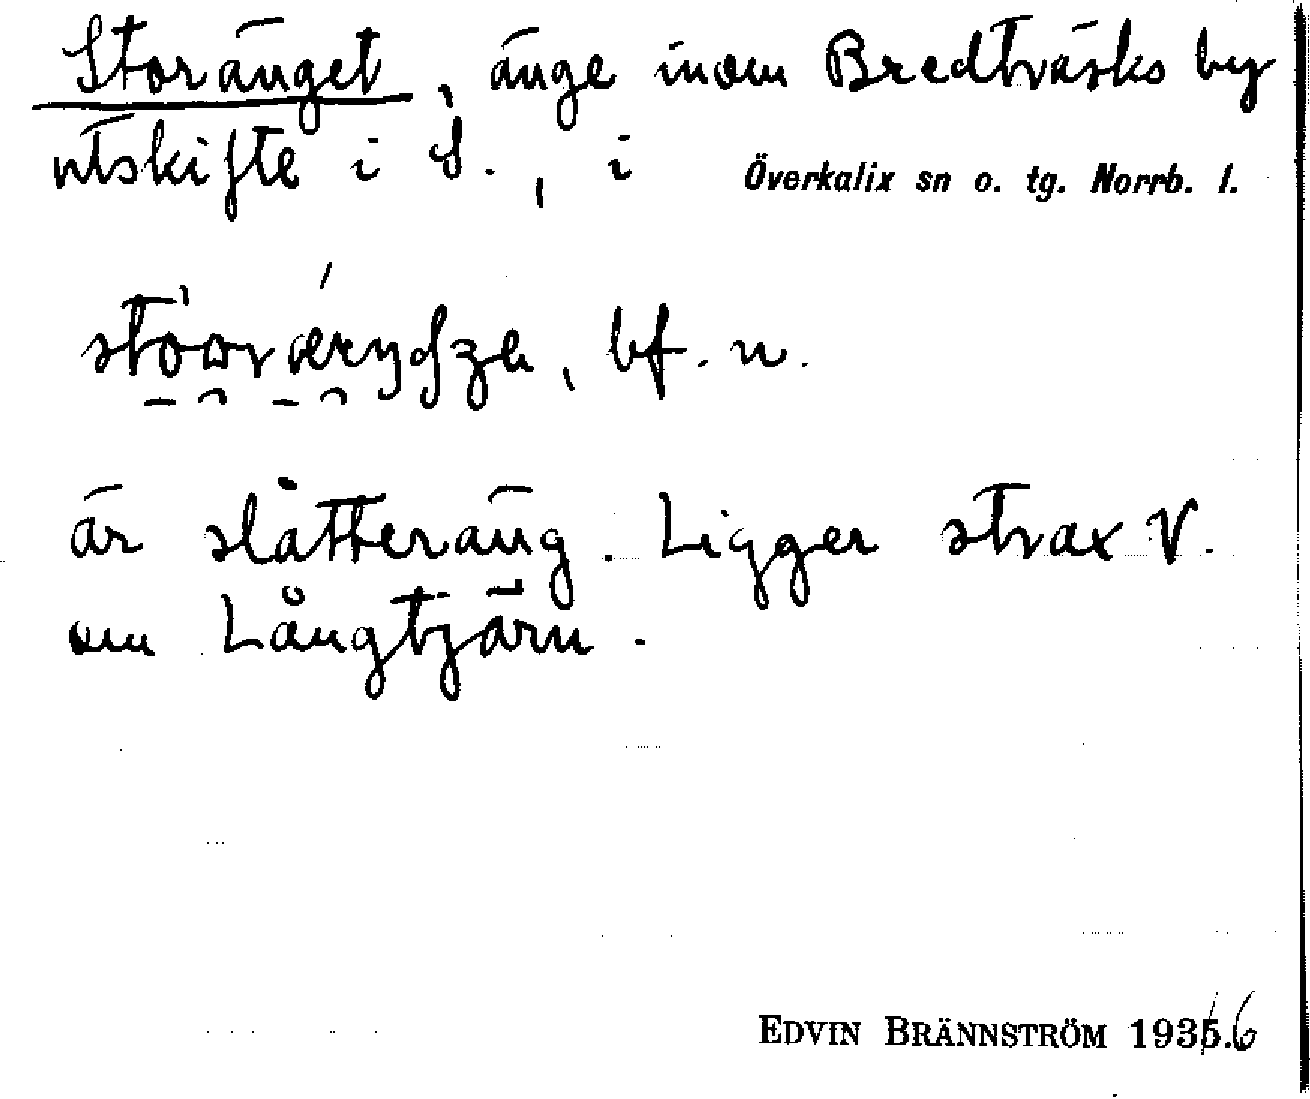 Storänget, änge inom Bredträsks by
utskifte i S., i Överkalix sn o. tg. Norrb. l.
bf. n.
är slåtteräng. Ligger strax V.
om Långtjärn.
EDVIN BRÄNNSTRÖM 1935.6